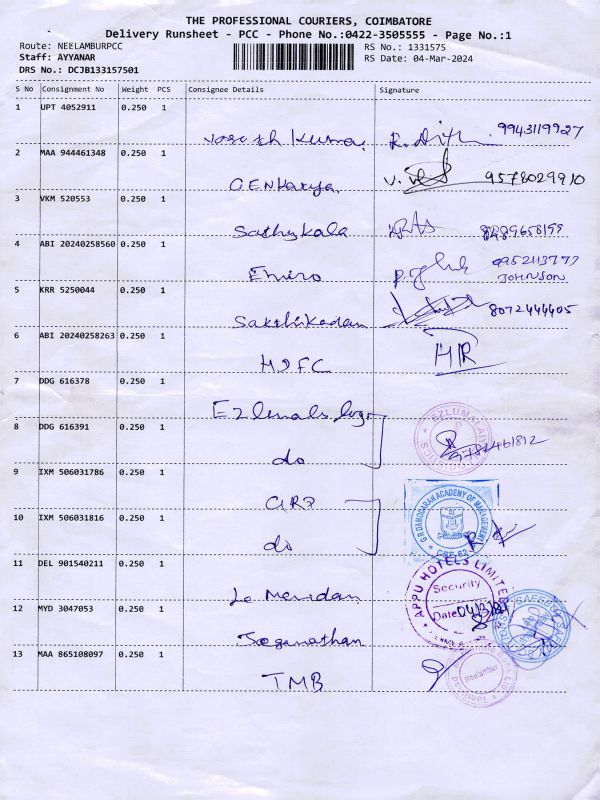 THE PROFESSIONAL COURIERS, COIMBATORE
Delivery Runsheet - PCC - Phone No.:0422-3505555 - Page No.:1
Route: NEELAMBURPCC
RS No.: 1331575
Staff: AYYANAR
RS Date: 04-Mar-2024
DRS No.: DCJB133157501
S No Consignment No Weight PCS Consignee Details Signature
1 UPT 4052911 0.250 1
9943119927
2 MAA 944461348 0.250 1
9578029910
3 VKM 520553 0.250 1
Sathykala
4 ABI 20240258560 0.250 1
JOHNSON
5 KRR 5250044 0.250 1
8072444405
6 ABI 20240258263 0.250 1
HR
7 DDG 616378 0.250 1
8 DDG 616391 0.250 1
do
9 IXM 506031786 0.250 1
GRD
G R DAMODARAN ACADEMY OF MANAGEMENT
CBE-62
10 IXM 506031816 0.250 1
do
11 DEL 901540211 0.250 1
APPU HOTELS LIMITED
Security
Date
Le Meridan
12 MYD 3047053 0.250 1
Jeganathan
13 MAA 865108097 0.250 1
Neelambur
TMB